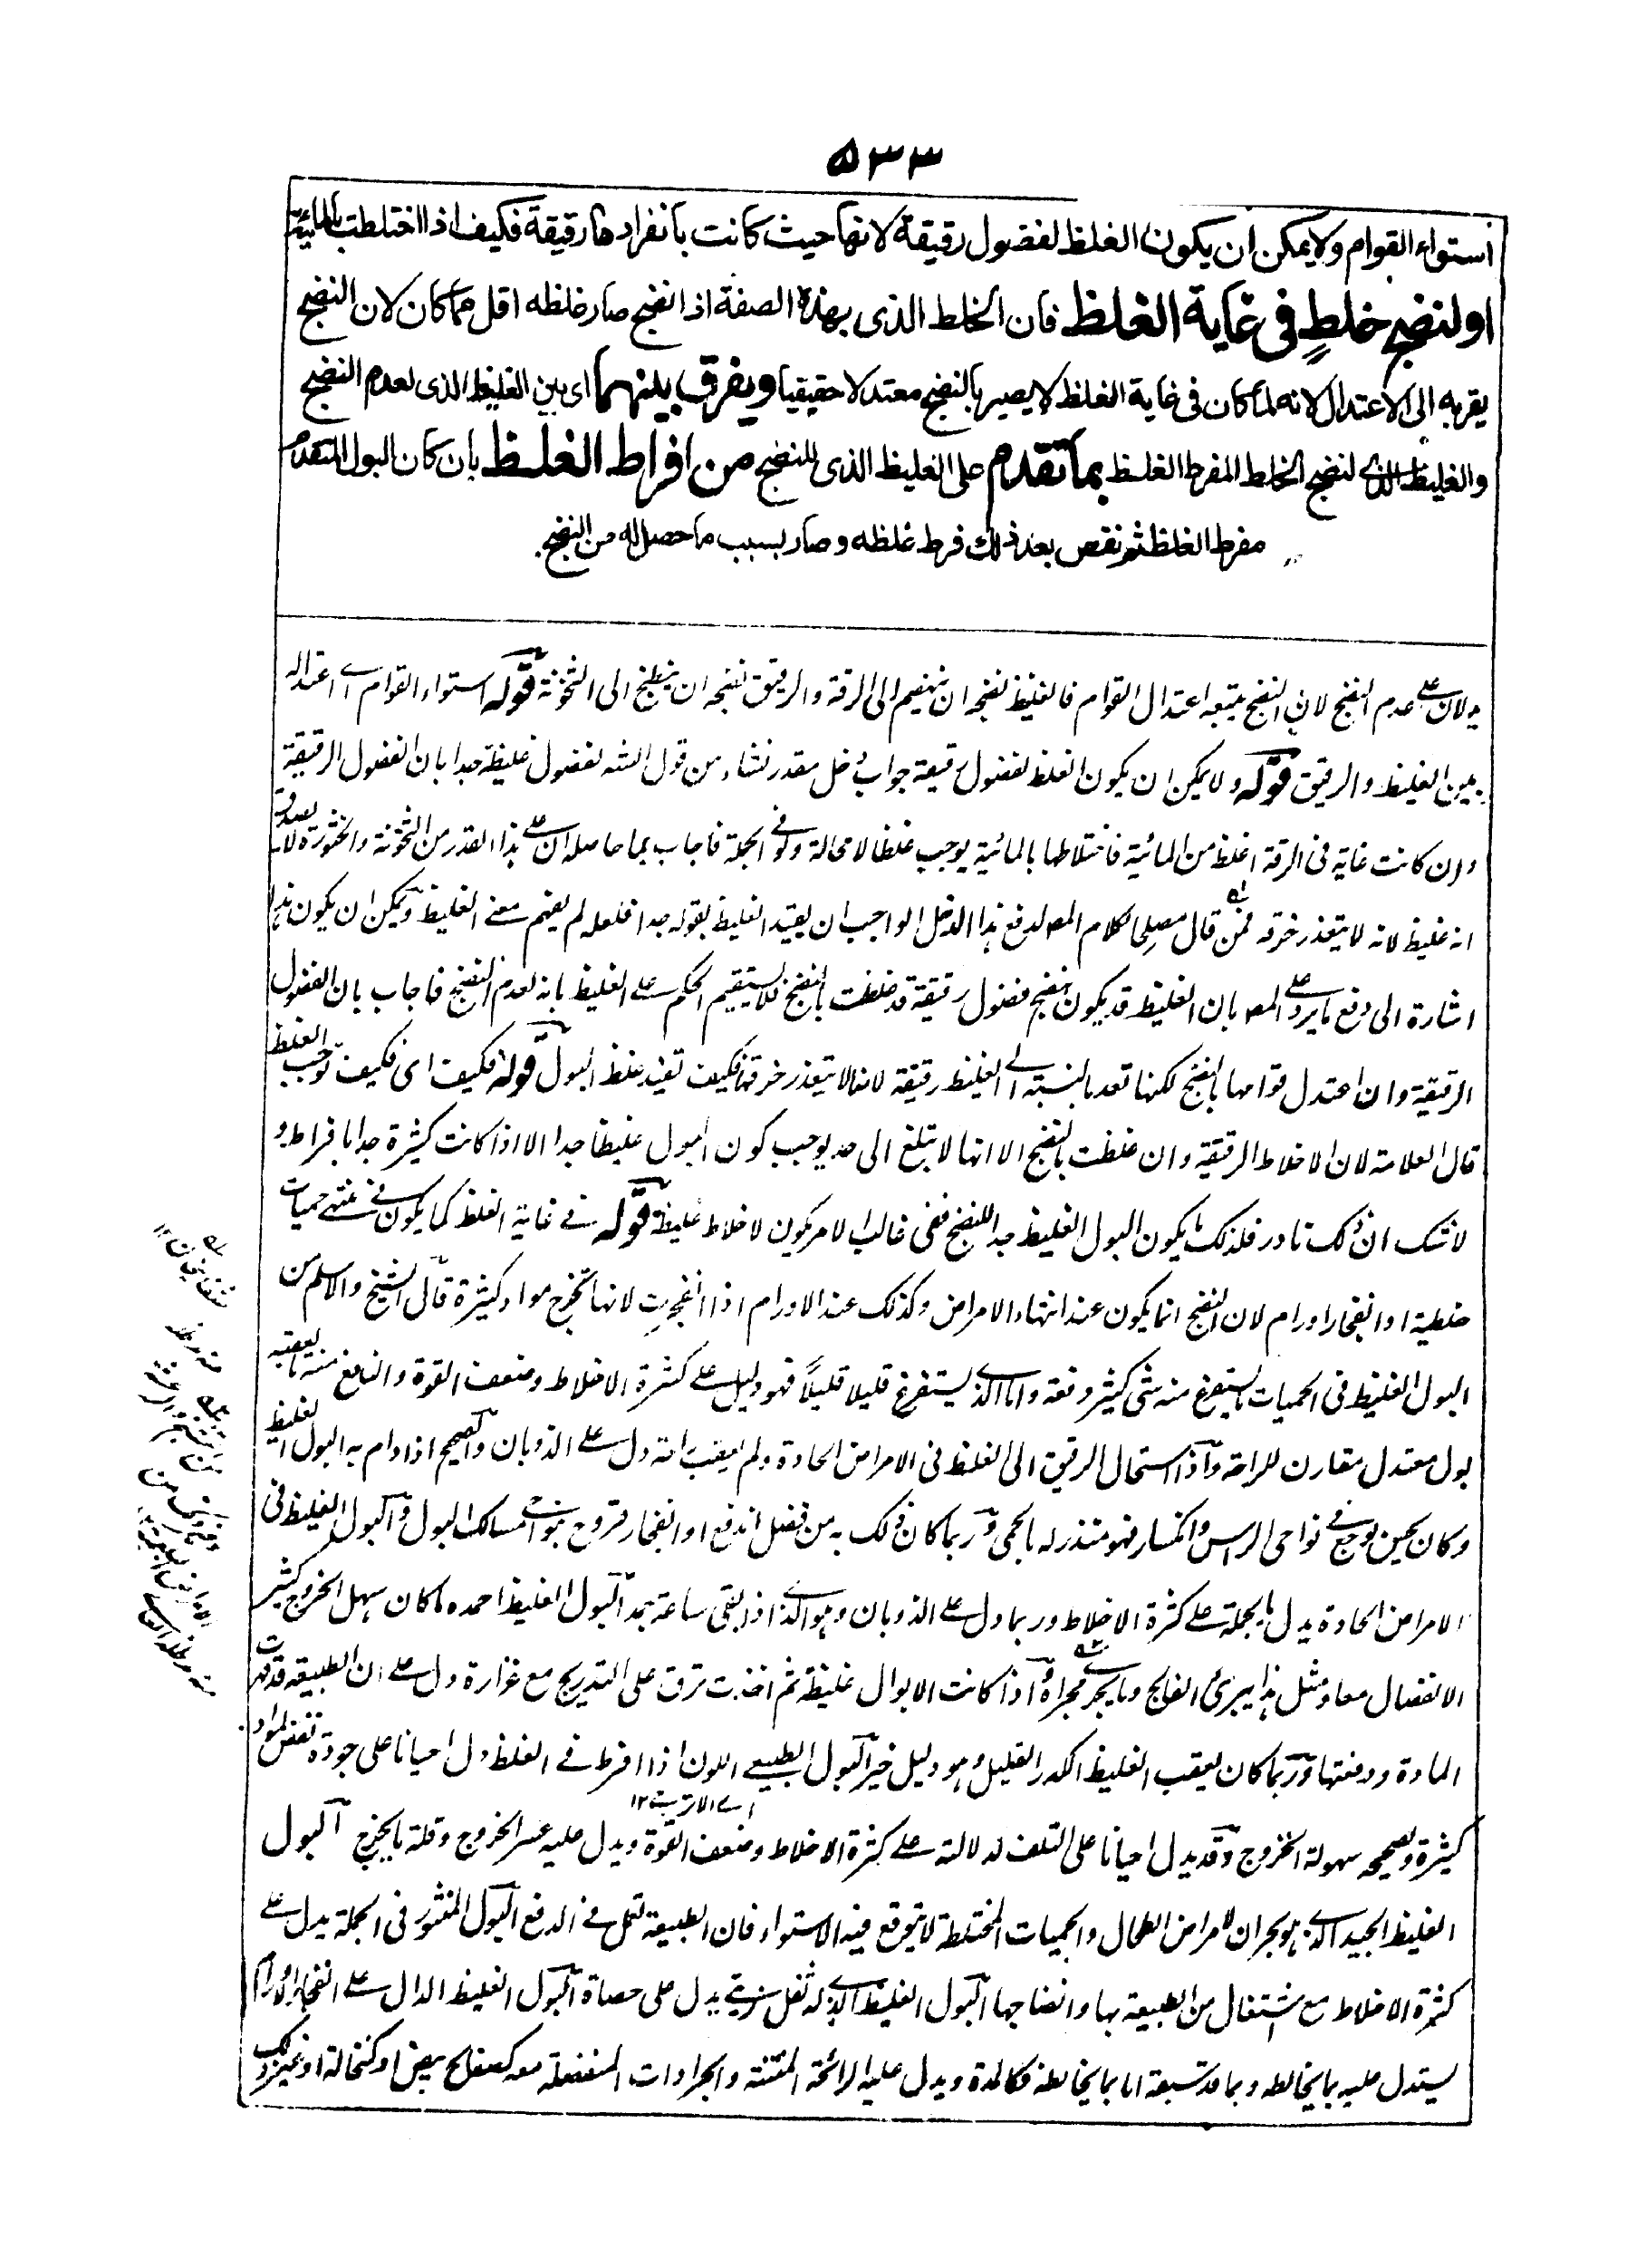 ۵۳۳
استواء القوام ولا يمكن ان يكون الغلظ لفضول رقيقة لانها حيث كانت بانفرادها رقيقة فكيف اذا اختلطت بالمائية
او لنضج خلطٍ فى غاية الغلظ فان الخلط الذى بهذه الصفة اذا نضج صار غلظه اقل مما كان لان النضج
يقربه الى الاعتدال لانه لما كان فى غاية الغلظ لا يصير بالنضج معتدلا حقيقيا ويفرق بينهما اى بين الغليظ الذى لعدم النضج
والغليظ الذى لنضج الخلط المفرط الغلظ بما تقدم على الغليظ الذى للنضج من افراط الغلظ بان كان البول المتقدم
مفرط الغلظ ثم نقص بعد ذلك فرط غلظه وصار بسبب ما حصل له من النضج
يدلان على عدم النضج لان النضج يتبعه اعتدال القوام فالغليظ نضجه ان ينهضم الى الرقة والرقيق نضجه ان ينطبخ الى الثخونة قوله استواء القوام اے اعتداله
بين الغليظ والرقيق قوله ولا يمكن ان يكون الغلظ لفضول رقيقة جواب دخل مقدر نشاء من قول الشه لفضول غليظة جدا بان الفضول الرقيقة
وان كانت غاية فى الرقة اغلظ من المائية فاختلاطها بالمائية يوجب غلظا لا محالة ولو فى الجملة فاجاب بما حاصله ان على هذا القدر من الثخونة والخثورة لا يصدق
انه غليظ لانه لا يتعذر خرقه فمن قال مصلحا لكلام المص لدفع هذا الدخل الواجب ان يقيد الغليظ بقوله جدا فلعله لم يفهم معنے الغليظ ويمكن ان يكون هذا
اشارة الى دفع ما يرد على المص بان الغليظ قد يكون لنضج فضول رقيقة قد غلظت بالنضج فلا يستقيم الحكم على الغليظ بانه لعدم النضج فاجاب بان الفضول
الرقيقة وان اعتدل قوامها بالنضج لكنها تعد بالنسبة الى الغليظ رقيقة لانها لا يتعذر خرقها فكيف تفيد غلظ البول قوله فكيف اى فكيف توجب الغلظ
قال العلامة لان الاخلاط الرقيقة وان غلظت بالنضج الا انها لا تبلغ الى حد يوجب كون البول غليظا جدا الا اذا كانت كثيرة جدا بافراط و
لا شك ان ذلك نادر فلذلك ما يكون البول الغليظ جدا للنضج ففى غالب الامر يكون لاخلاط غليظة قوله فے غاية الغلظ كما يكون فے منتهے حميات
خلطية او انفجار اورام لان النضج انما يكون عند انتهاء الامراض وكذلك عند الاورام اذا انفجرت لانها تخرج مواد كثيرة قال الشيخ والاسلم من
البول الغليظ فى الحميات ما يستفرغ منه شئ كثير دفعة واما الذے يستفرغ قليلا قليلاً فهو دليل على كثرة الاخلاط وضعف القوة والنافع منه ما يعقبه
بول معتدل مقارن للراحة واذا استحال الرقيق الى الغلظ فى الامراض الحادة ولم يعقب راحة دل على الذوبان والصحيح اذا دام به البول الغليظ
وكان يحس بوجع فى نواحى الراس وانكسار فهو منذر له بالحمى وربما كان ذلك به من فضل اندفع او انفجار قروح بنواحے مسالك البول والبول الغليظ فى
الامراض الحادة يدل بالجملة على كثرة الاخلاط وربما دل على الذوبان وهو الذے اذا بقى ساعة جمد البول الغليظ احمده ما كان سهل الخروج كثير
الانفصال معا ومثل هذا يبرئ الفالج وما يجرے مجراه واذا كانت الابوال غليظة ثم اخذت ترق على التدريج مع غزارة دل على ان الطبيعة قد قهرت
المادة ودفعتها وربما كان يعقب الغليظ الكدر القليل وهو دليل خير البول الطبيعے اللون اذا افرط فے الغلظ دل احيانا على جودة نفض المواد
اے الاترية ۱۲
كثيرة ويصحبه سهولة الخروج وقد يدل احيانا على التلف لدلالته على كثرة الاخلاط وضعف القوة ويدل عليه عسر الخروج وقلة ما يخرج البول
الغليظ الجيد الذے هو بحران لامراض الطحال والحميات المختلطة لا يتوقع فيه الاستواء فان الطبيعة تعمل فے الدفع البول المنثور فى الجملة يدل على
كثرة الاخلاط مع اشتغال من الطبيعة بها وانضاجها البول الغليظ الذے له ثفل زيتے يدل على حصاة البول الغليظ الدال على انفجار الاورام
يستدل عليه بما يخالطه وبما قد سبقه اما ما يخالطه فكالمدة ويدل عليها الرائحة المنتنة والجرادات المنفصلة معه كصفائح بيض او كنخالة او غير ذلك